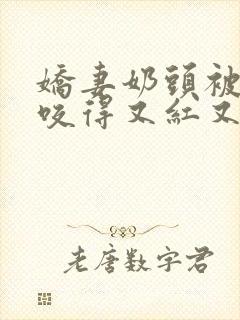 嬌妻奶頭被
咬得又紅又
老唐數字君